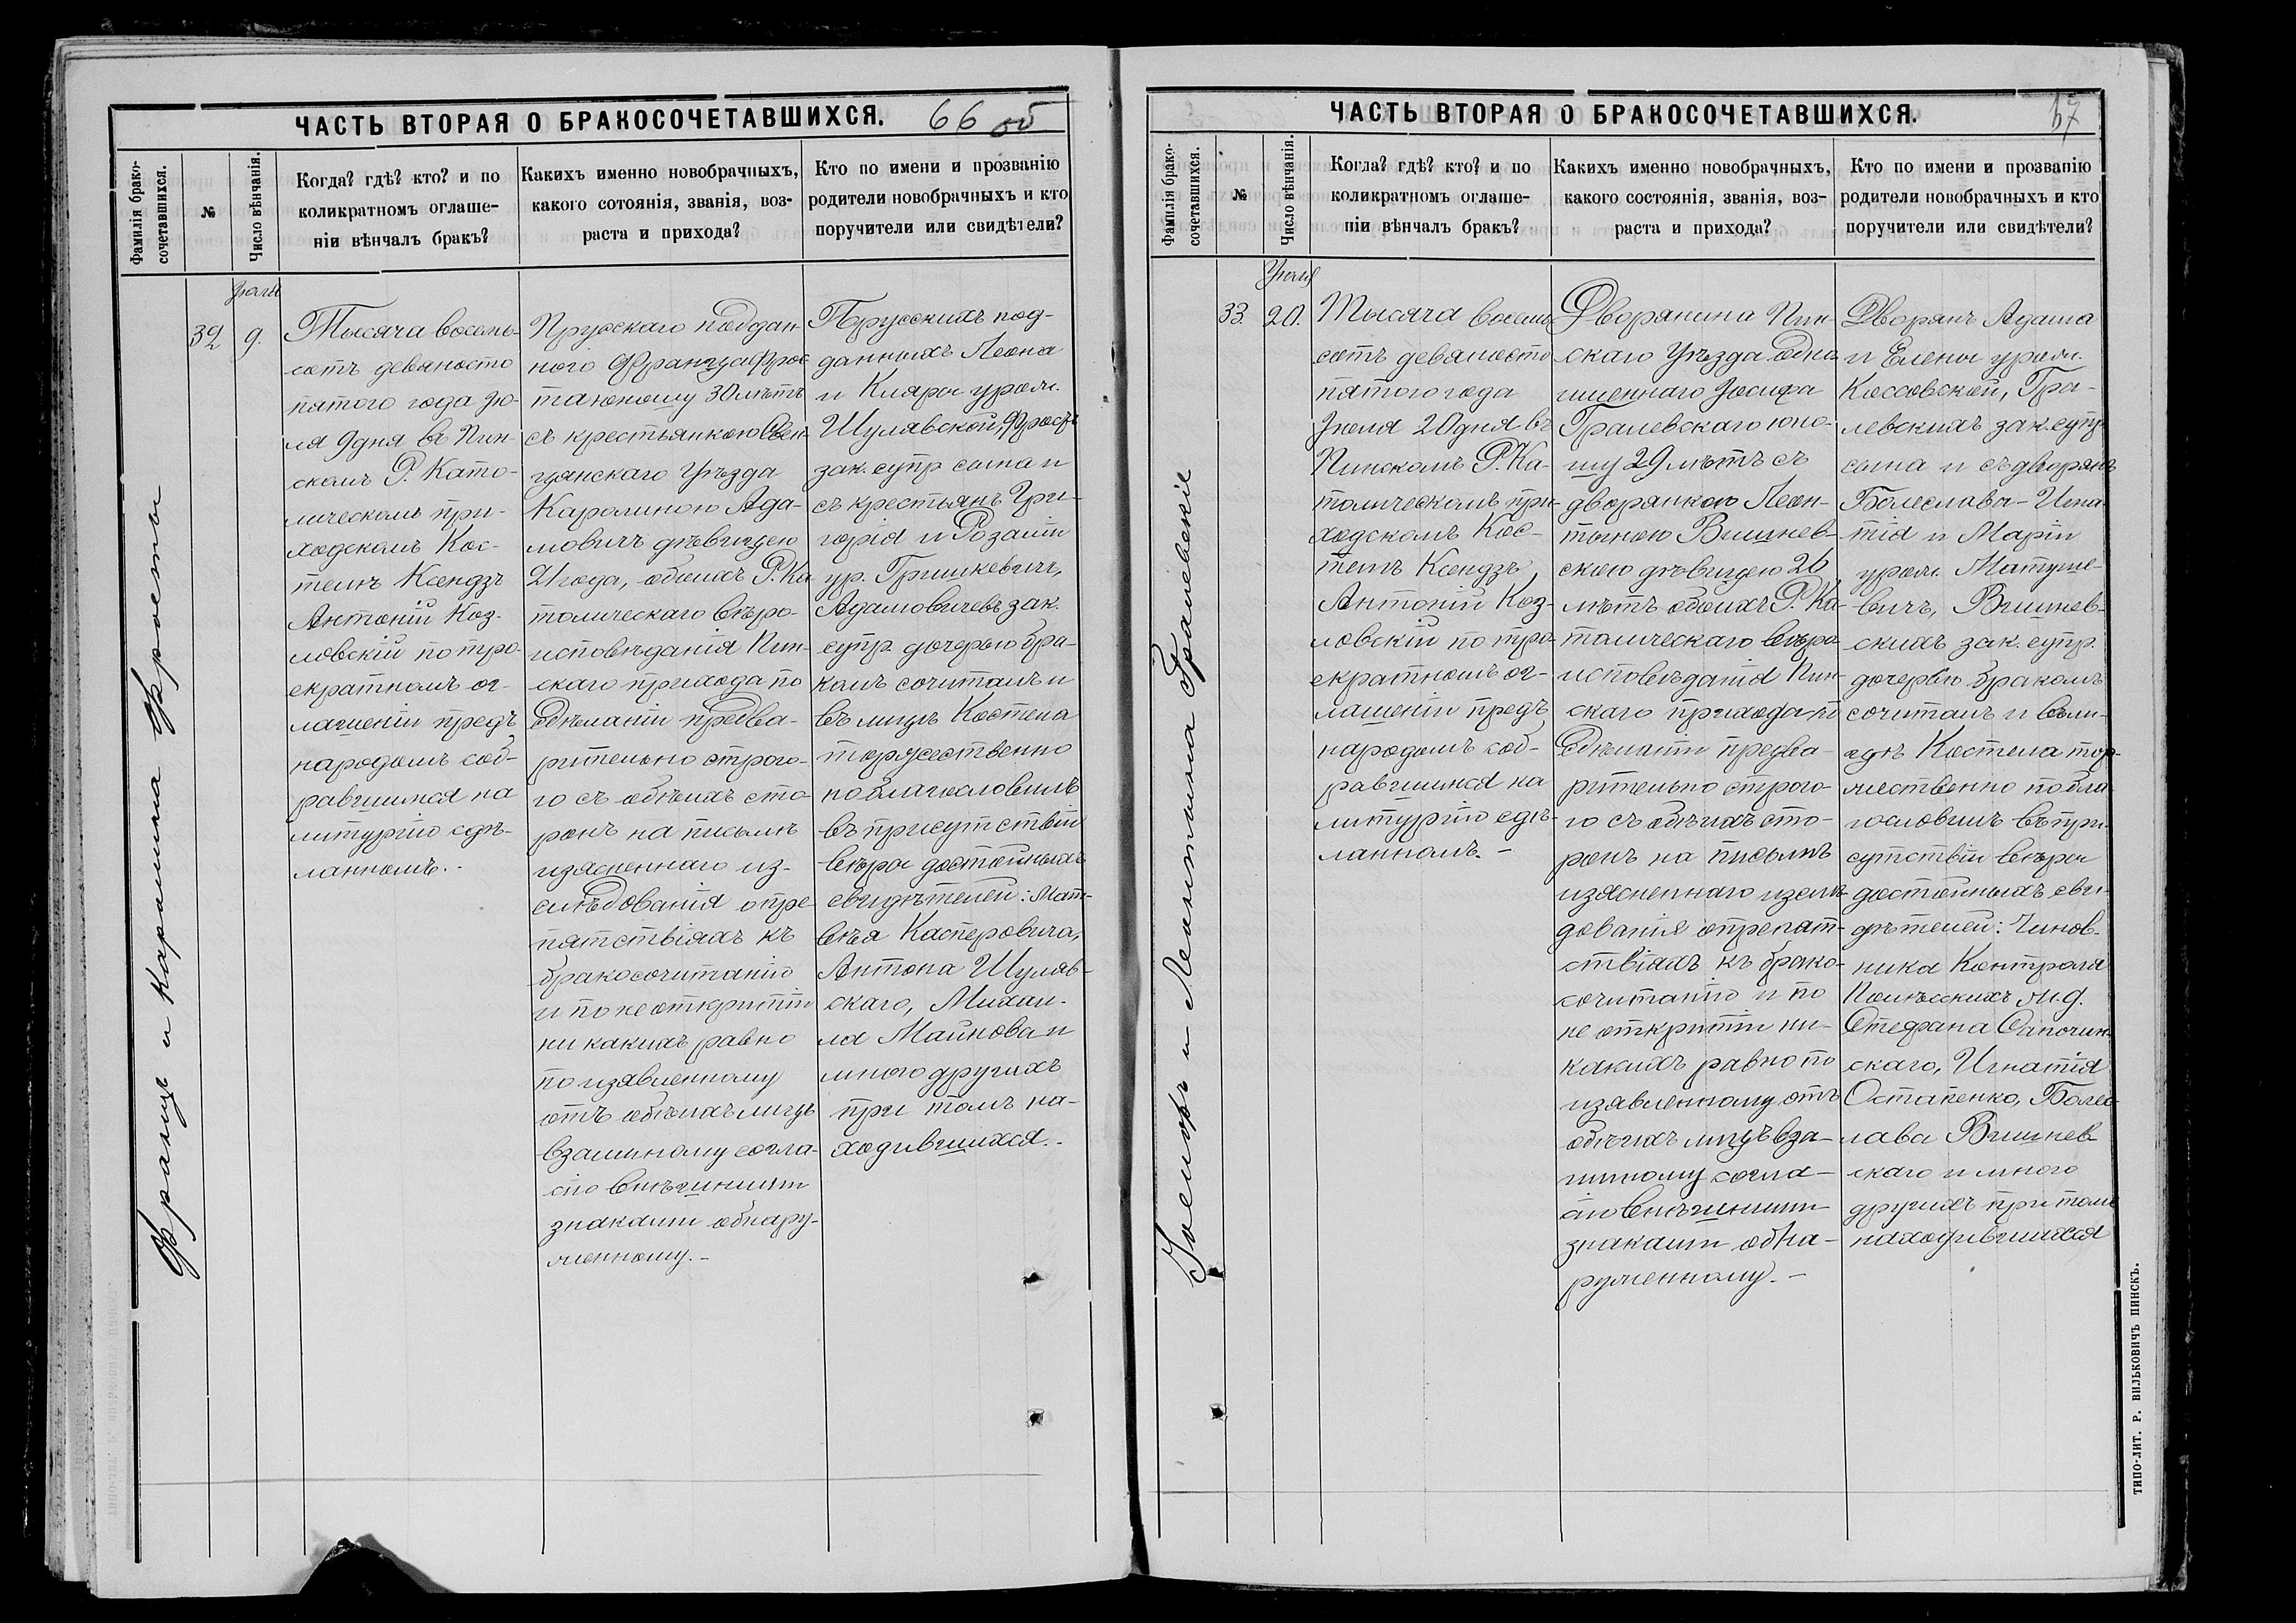 ЧАСТЬ ВТОРАЯ О БРАКОСОЧЕТАВШИХСЯ. 66 об
Фамилія брако-
сочетавшихся.
№
Число вѣнчанія.
Когда? гдѣ? кто? и по
коликратномъ оглаше-
ніи вѣнчалъ бракъ?
Какихъ именно новобрачныхъ,
какого сотоянія, званія, воз-
раста и прихода?
Кто по имени и прозванію
родители новобрачныхъ и кто
поручители или свидѣтели?
Францъ и Каролина Фросты
32
Іюля
9.
Тысяча восемь-
сотъ девяносто
пятого года Ію-
ля 9 дня въ Пин-
скомъ Р. Като-
лическомъ при-
ходскомъ Кос-
телѣ Ксендзъ
Антоній Коз-
ловскій по тро-
екратномъ ог-
лашеніи предъ
народомъ соб-
равшимся на
литургію сдѣ-
ланномъ.-
Прускаго поддан-
ного Франца Фрос
та юношу 30 лѣтъ
съ крестьянкою Свен-
цянскаго Уѣзда
Каролиною Ада-
мовичъ дѣвицею
21 года, обоихъ Р. Ка
толическаго вѣро-
исповѣданія Пин-
скаго прихода по
Сдѣланіи предва-
рительно строго-
го съ обѣихъ сто-
ронъ на письмѣ
изясненнаго из-
слѣдованія о пре
пятствіяхъ къ
бракосочитанію
и по не открытіи
ни какихъ равно
по изявленному
отъ обѣихъ лицъ
взаимному согла-
сію внѣшними
знаками обнару-
женному.-
Прусскихъ под-
данныхъ Леона
и Клары урож.
Шулявской, Фростъ
зак. супр сына и
съ крестьянъ Гри-
горія и Розаліи
ур. Гришкевичъ,
Адамовичевъ зак.
супр. дочерью бра-
комъ сочиталъ и
въ лицѣ Костела
торжественно
поблагословилъ
въ присутствіи
вѣры достойныхъ
свидѣтелей: Мат-
вѣя Касперовича,
Антона Шуляв-
скаго, Михаи-
ла Майнова и
много другихъ
при томъ на-
ходившихся.-
ЧАСТЬ ВТОРАЯ О БРАКОСОЧЕТАВШИХСЯ. 67
Фамилія брако-
сочетавшихся.
№
Число вѣнчанія.
Когла? гдѣ? кто? и по
коликратномъ оглаше-
ніи вѣнчалъ бракъ?
Какихъ именно новобрачныхъ,
какого состоянія, званія, воз-
раста и прихода?
Кто по имени и прозванію
родители новобрачныхъ и кто
поручители или свидѣтели?
Іосифъ и Леонтина Гралевскіе
33.
Іюля
20.
Тысяча восемь
сотъ девяносто
пятого года
Іюля 20 дня въ
Пинскомъ Р. Ка-
толическомъ при-
ходскомъ Кос-
телѣ Ксендзъ
Антоній Коз-
ловскій по тро-
екратномъ ог-
лашеніи предъ
народомъ соб-
равшимся на
литургію сдѣ-
ланномъ.-
Дворянина Пин-
скаго Уѣзда
Іосифа
Гралевскаго юно-
шу 29 лѣтъ съ
дворянкою Леон-
тиною Вишнев-
скою дѣвицею 26
лѣтъ обоихъ Р. Ка-
толическаго вѣро-
исповѣданія Пин-
скаго прихода по
Сдѣланіи предва-
рительно строго-
го съ обѣихъ сто-
ронъ на письмѣ
изясненнаго изслѣ-
дованія о препят-
ствіяхъ къ брако-
сочитанію и по
не открытіи ни-
какихъ равно по
изявленному отъ
обѣихъ лицъ вза-
имному согла-
сію внѣшними
знаками обна-
руженному.-
Дворянъ Адама
и Елены урож.
Коссовской, Гра-
левскихъ зак. супр
сына и съ дворянъ
Болеслава-Игна-
тія и Маріи
урож. Матуше-
вичъ, Вишнев-
скихъ зак. супр.
дочерью бракомъ
сочиталъ и въ ли-
цѣ Костела тор-
жественно побла
гословилъ въ при-
сутствіи вѣры
достойныхъ сви-
дѣтелей: Чинов-
ника Контроля
Полѣсскихъ ж.д.
Стефана Сапочин-
скаго, Игнатія
Остапенко, Болес
лава Вишнев-
скаго и много
другихъ при томъ
находившихся
ТИПО-ЛИТ. Р. ВИЛЬКОВИЧЪ ПИНСКЪ.